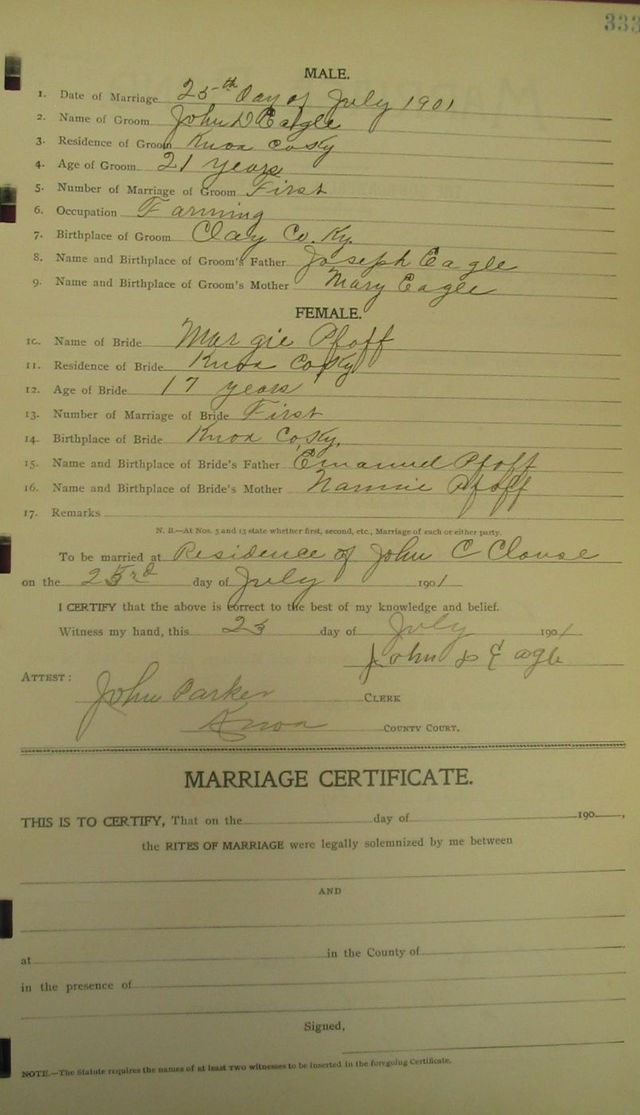 333
MALE.
1. Date of Marriage 25th day of July 1901
2. Name of Groom John D Eagle
3. Residence of Groom Knox Co Ky
4. Age of Groom 21 years
5. Number of Marriage of Groom First
6. Occupation Farming
7. Birthplace of Groom Clay Co. Ky.
8. Name and Birthplace of Groom's Father Joseph Eagle
9. Name and Birthplace of Groom's Mother Mary Eagle
FEMALE.
10. Name of Bride Margie Pfoff
11. Residence of Bride Knox Co Ky
12. Age of Bride 17 years
13. Number of Marriage of Bride First
14. Birthplace of Bride Knox Co Ky.
15. Name and Birthplace of Bride's Father Emanuel Pfoff
16. Name and Birthplace of Bride's Mother Nannie Pfoff
17. Remarks
N. B.—At Nos. 5 and 13 state whether first, second, etc., Marriage of each or either party.
To be married at Residence of John C Clouse
on the day of July 1901
I CERTIFY that the above is correct to the best of my knowledge and belief.
Witness my hand, this 23 day of July 1901
John D Eagle
ATTEST:
John Parker CLERK
Knox COUNTY COURT.
MARRIAGE CERTIFICATE.
THIS IS TO CERTIFY, That on the day of 190 ,
the RITES OF MARRIAGE were legally solemnized by me between
AND
at in the County of
in the presence of
Signed,
NOTE.—The Statute requires the names of at least two witnesses to be inserted in the foregoing Certificate.